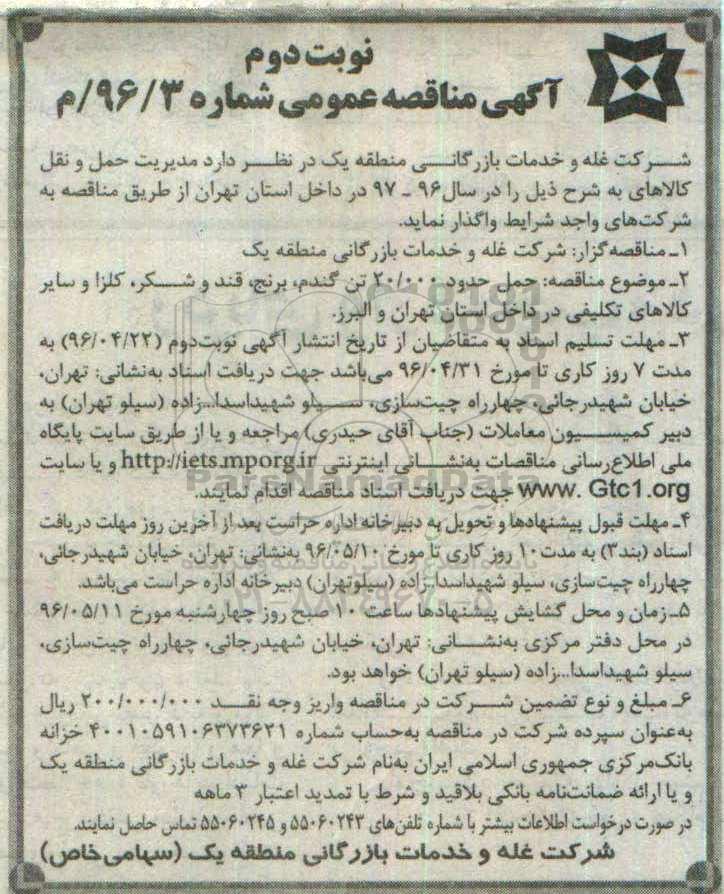 نوبت دوم
آگهی مناقصه عمومی شماره ۹۶/۳/م
شرکت غله و خدمات بازرگانی منطقه یک در نظر دارد مدیریت حمل و نقل
کالاهای به شرح ذیل را در سال ۹۶ ـ ۹۷ در داخل استان تهران از طریق مناقصه به
شرکت‌های واجد شرایط واگذار نماید.
۱ـ مناقصه‌گزار: شرکت غله و خدمات بازرگانی منطقه یک
۲ـ موضوع مناقصه: حمل حدود ۲۰/۰۰۰ تن گندم، برنج، قند و شکر، کلزا و سایر
کالاهای تکلیفی در داخل استان تهران و البرز.
۳ـ مهلت تسلیم اسناد به متقاضیان از تاریخ انتشار آگهی نوبت‌دوم (۹۶/۰۴/۲۲) به
مدت ۷ روز کاری تا مورخ ۹۶/۰۴/۳۱ می‌باشد جهت دریافت اسناد به‌نشانی: تهران،
خیابان شهیدرجائی، چهارراه چیت‌سازی، سیلو شهیداسدا...زاده (سیلو تهران) به
دبیر کمیسیون معاملات (جناب آقای حیدری) مراجعه و یا از طریق سایت پایگاه
ملی اطلاع‌رسانی مناقصات به‌نشانی اینترنتی http://iets.mporg.ir و یا سایت
www. Gtc1.org جهت دریافت اسناد مناقصه اقدام نمایند.
۴ـ مهلت قبول پیشنهادها و تحویل به دبیرخانه اداره حراست بعد از آخرین روز مهلت دریافت
اسناد (بند۳) به مدت ۱۰ روز کاری تا مورخ ۹۶/۰۵/۱۰ به‌نشانی: تهران، خیابان شهیدرجائی،
چهارراه چیت‌سازی، سیلو شهیداسدا...زاده (سیلوتهران) دبیرخانه اداره حراست می‌باشد.
۵ـ زمان و محل گشایش پیشنهادها ساعت ۱۰ صبح روز چهارشنبه مورخ ۹۶/۰۵/۱۱
در محل دفتر مرکزی به‌نشانی: تهران، خیابان شهیدرجائی، چهارراه چیت‌سازی،
سیلو شهیداسدا...زاده (سیلو تهران) خواهد بود.
۶ـ مبلغ و نوع تضمین شرکت در مناقصه واریز وجه نقد ۲۰۰/۰۰۰/۰۰۰ ریال
به‌عنوان سپرده شرکت در مناقصه به‌حساب شماره ۴۰۰۱۰۵۹۱۰۶۳۷۳۶۲۱ خزانه
بانک‌مرکزی جمهوری اسلامی ایران به‌نام شرکت غله و خدمات بازرگانی منطقه یک
و یا ارائه ضمانت‌نامه بانکی بلاقید و شرط با تمدید اعتبار ۳ ماهه
در صورت درخواست اطلاعات بیشتر با شماره تلفن‌های ۵۵۰۶۰۲۴۳ و ۵۵۰۶۰۲۴۵ تماس حاصل نمایند.
شرکت غله و خدمات بازرگانی منطقه یک (سهامی‌خاص)
ParsNamadData